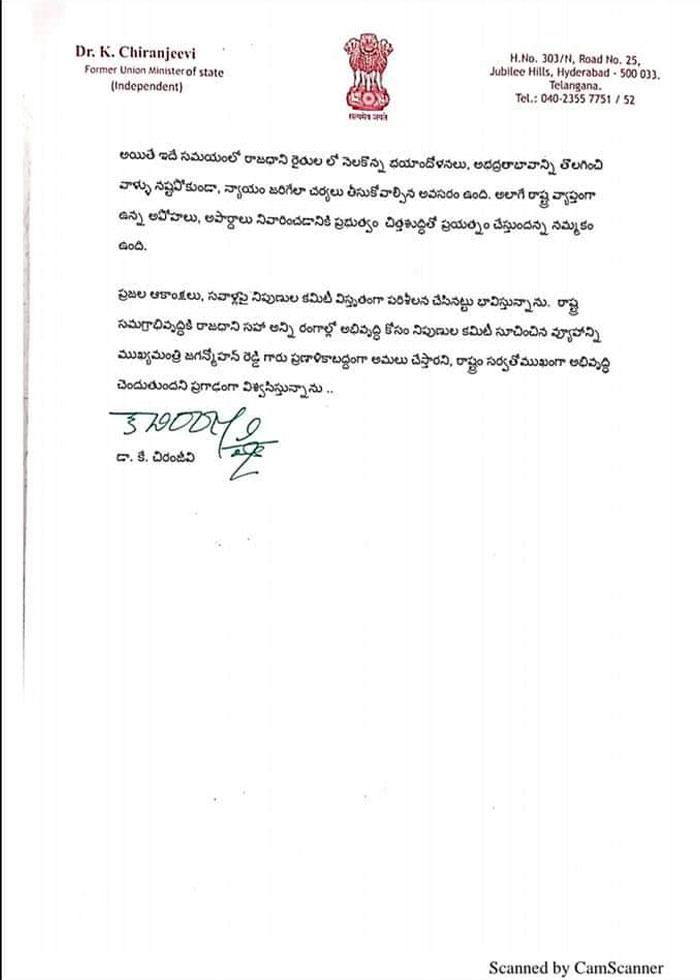 Dr. K. Chiranjeevi
Former Union Minister of state
(Independent)
सत्यमेव जयते
H.No. 303/N, Road No. 25,
Jubilee Hills, Hyderabad - 500 033.
Telangana.
Tel.: 040-2355 7751 / 52
అయితే ఇదే సమయంలో రాజధాని రైతుల లో నెలకొన్న భయాందోళనలు, అభద్రతాబావాన్ని తొలగించి
వాళ్ళు నష్టపోకుండా, న్యాయం జరిగేలా చర్యలు తీసుకోవాల్సిన అవసరం ఉంది. అలాగే రాష్ట్ర వ్యాప్తంగా
ఉన్న అపోహలు, అపార్థాలు నివారించడానికి ప్రభుత్వం చిత్తశుద్ధితో ప్రయత్నం చేస్తుందన్న నమ్మకం
ఉంది.
ప్రజల ఆకాంక్షలు, సవాళ్లపై నిపుణుల కమిటీ విస్తృతంగా పరిశీలన చేసినట్టు భావిస్తున్నాను. రాష్ట్ర
సమగ్రాభివృద్ధికి రాజధాని సహా అన్ని రంగాల్లో అభివృద్ధి కోసం నిపుణుల కమిటీ సూచించిన వ్యూహాన్ని
ముఖ్యమంత్రి జగన్మోహన్ రెడ్డి గారు ప్రణాళికాబద్దంగా అమలు చేస్తారని, రాష్ట్రం సర్వతోముఖంగా అభివృద్ధి
చెందుతుందని ప్రగాఢంగా విశ్వసిస్తున్నాను ..
డా. కే. చిరంజీవి
Scanned by CamScanner